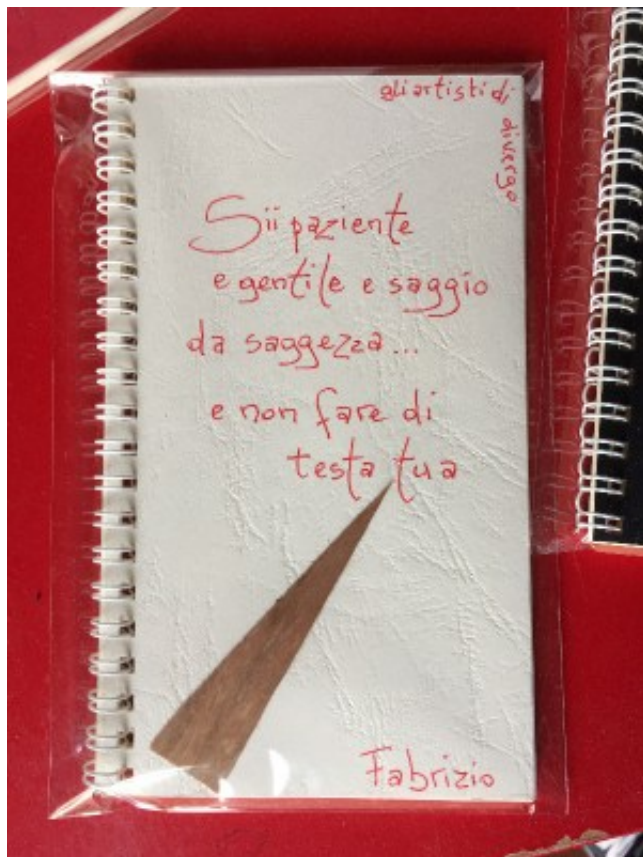 gli artisti di
diversgo
Sii paziente
e gentile e saggio
da saggezza...
e non fare di
testa tua
Fabrizio